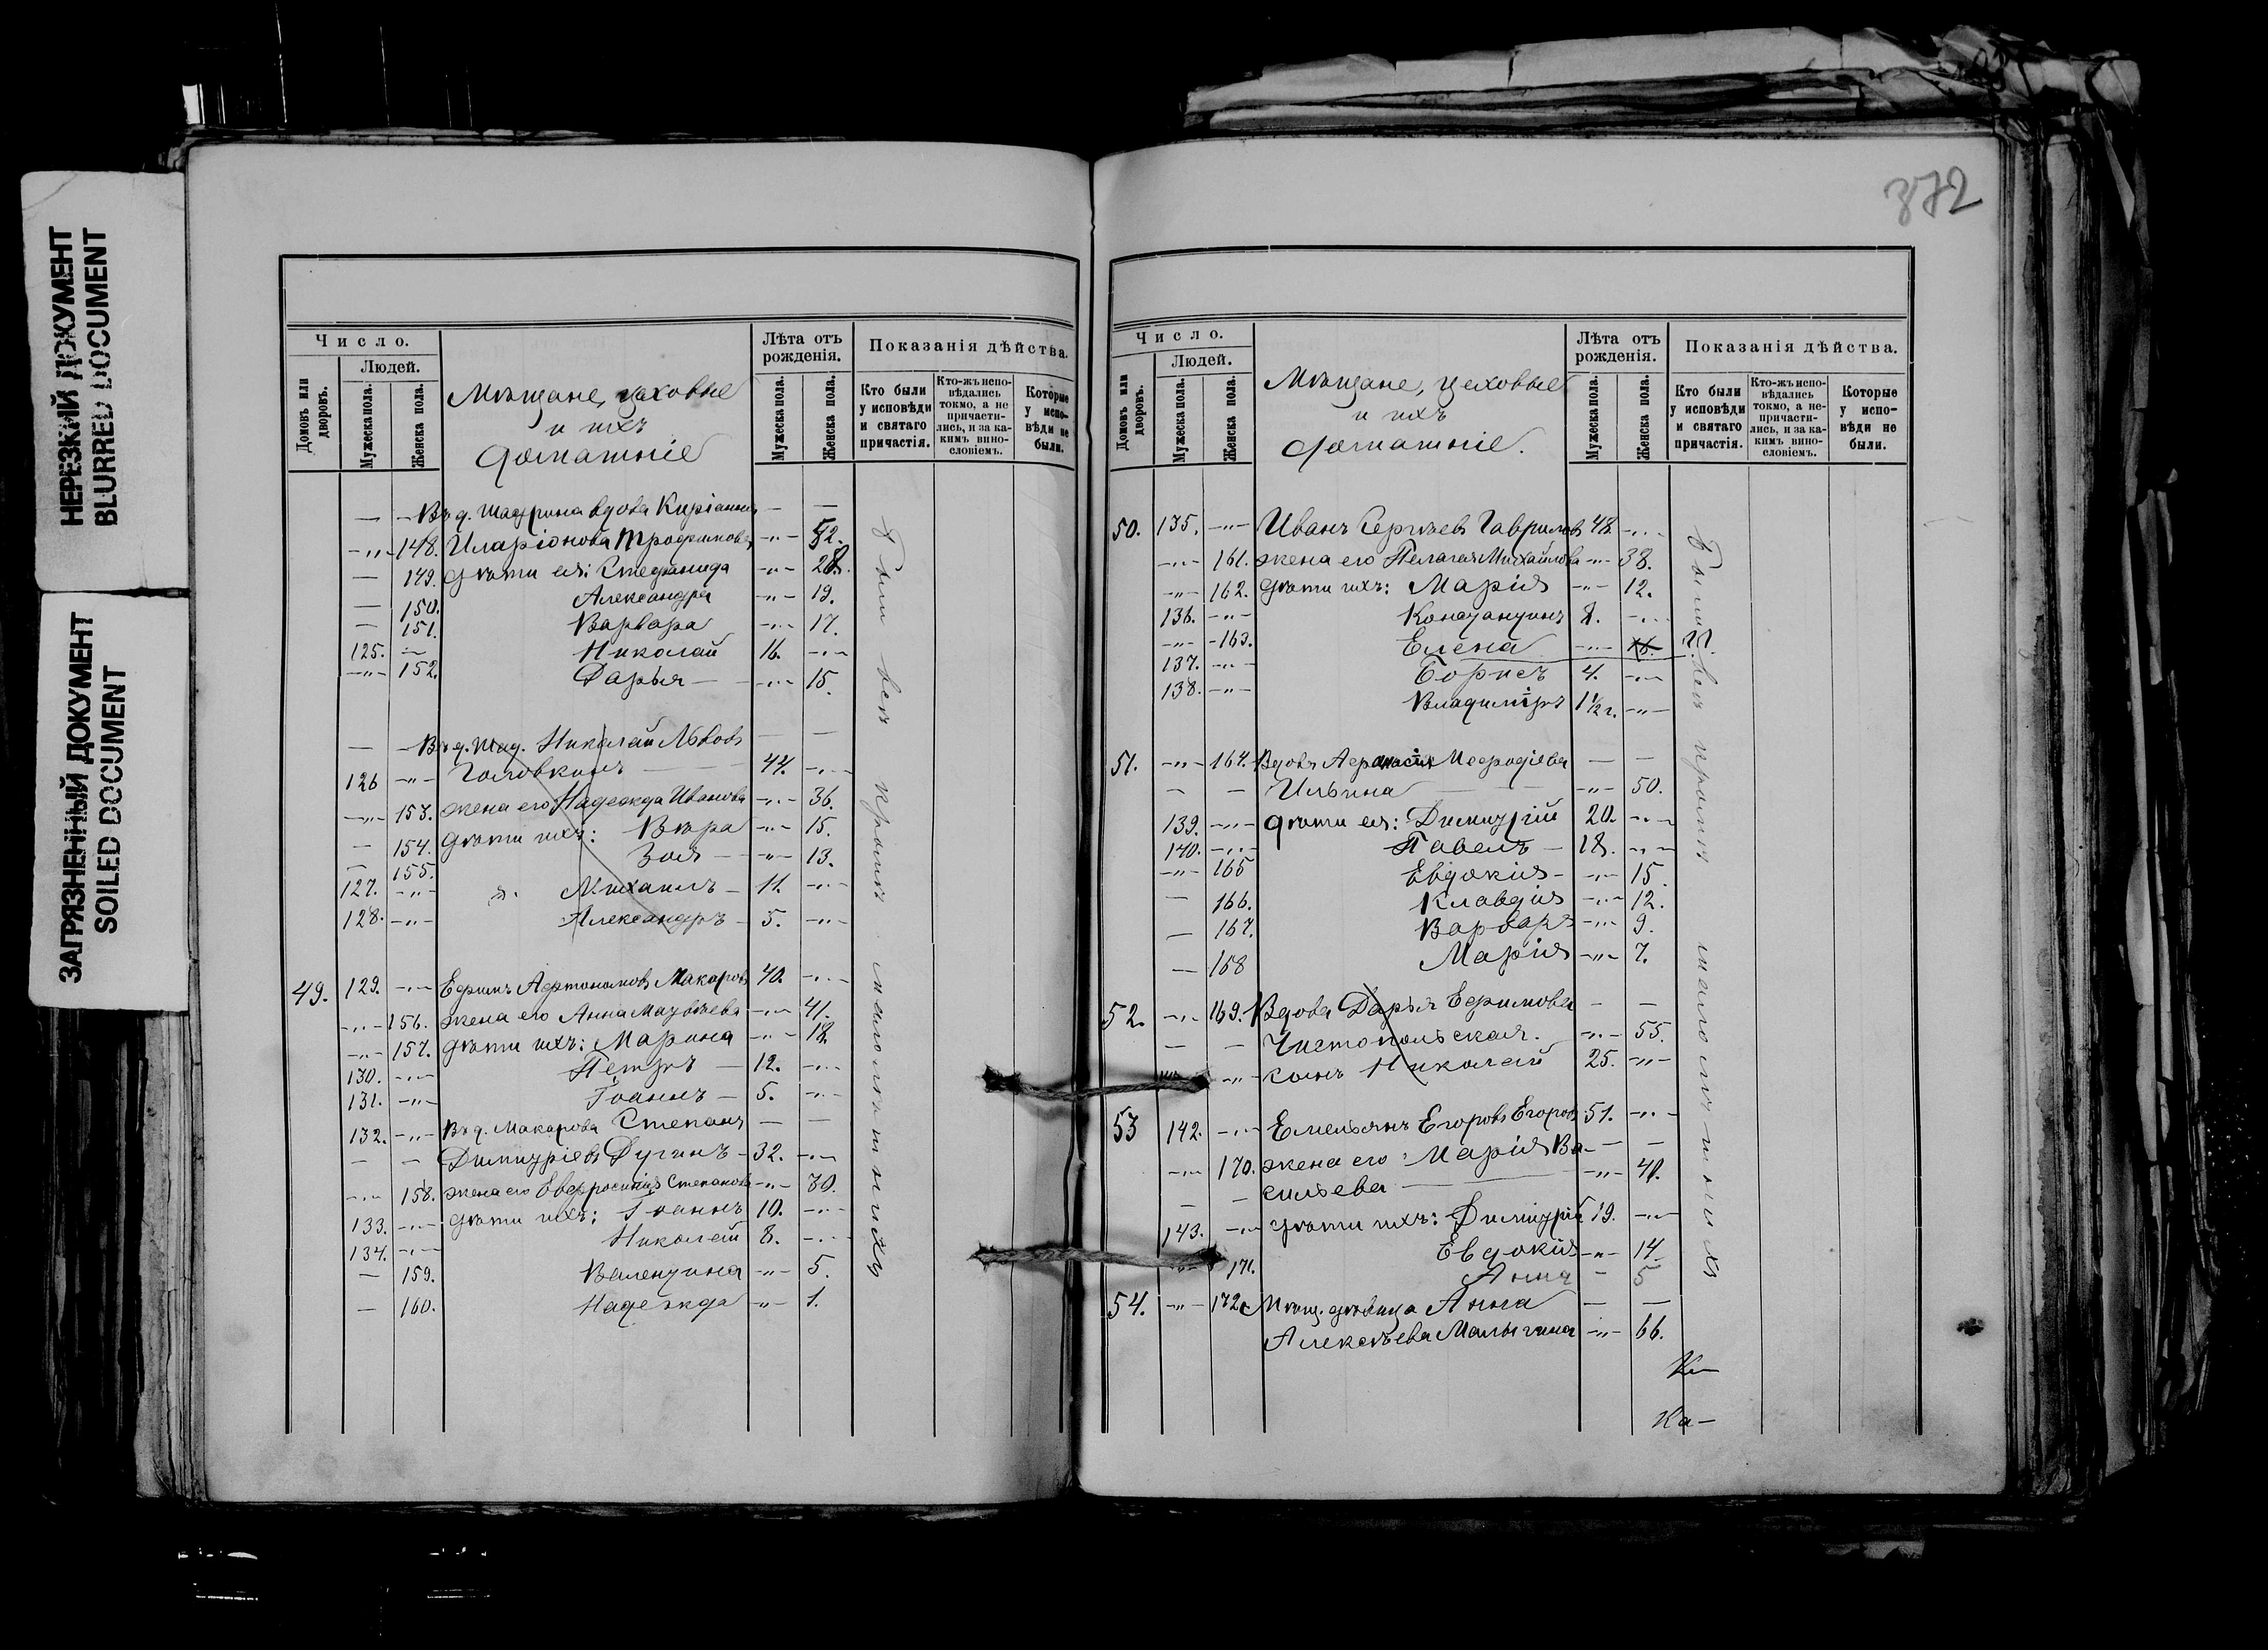 НЕРЕЗКИЙ ДОКУМЕНТ
BLURRED DOCUMENT
ЗАГРЯЗНЕННЫЙ ДОКУМЕНТ
SOILED DOCUMENT
Число.
Людей.
Домовъ или дворовъ.
Мужеска пола.
Женска пола.
Мѣщане, цеховые
и ихъ
домашніе
Лѣта отъ рожденія.
Мужеска пола.
Женска пола.
Показанія дѣйства.
Кто были у исповѣди и святаго причастія.
Кто-жъ исповѣдались токмо, а не причастились, и за какимъ винословіемъ.
Которые у исповѣди не были.
— — Въ д. Шадрина вдова — —
-„- 148. Иларіонова Трофимова -„- 52.
— 149. дѣти ея: Стефанида -„- 28.
— 150. Александра -„- 19.
— 151. Варвара -„- 17.
125. -„- Николай 16. -„-
-„- 152. Дарья — -„- 15.
— — Въ д. Шад. Николай Львовъ — —
126 -„- Головкинъ — 44. -„-
-„- 153. жена его Надежда Иванова -„- 36.
— 154. дѣти ихъ: Вѣра -„- 15.
— 155. Зоя — -„- 13.
127. -„- Михаилъ — 11. -„-
128. -„- Александръ — 5. -„-
49. 129. -„- Ефимъ Автономовъ Макаровъ 40. -„-
-„- 156. жена его Анна Матвѣева -„- 41.
-„- 157. дѣти ихъ: Марина -„- 18.
130. -„- Петръ — 12. -„-
131. -„- Іоаннъ — 5. -„-
132. -„- Въ д. Макарова Степанъ — —
— — Димитріевъ Дугинъ — 32. -„-
-„- 158. жена его Евфросинія Степанова -„- 30.
133. -„- дѣти ихъ: Іоаннъ 10. -„-
134. -„- Николай 8. -„-
— 159. Валентина -„- 5.
— 160. Надежда -„- 1.
были всѣ кромѣ малолѣтнихъ
372
Число.
Людей.
Домовъ или дворовъ.
Мужеска пола.
Женска пола.
Мѣщане, цеховые
и ихъ
домашніе.
Лѣта отъ рожденія.
Мужеска пола.
Женска пола.
Показанія дѣйства.
Кто были у исповѣди и святаго причастія.
Кто-жъ исповѣдались токмо, а не-причастились, и за какимъ винословіемъ.
Которые у исповѣди не были.
50. 135. -„- Иванъ Сергѣевъ Гавриловъ 48. -„-
-„- 161. жена его Пелагея Михайлова -„- 38.
-„- 162. дѣти ихъ: Марія -„- 12.
136. -„- Константинъ 8. -„-
-„- 163. Елена -„-
137. -„- Борисъ 4. -„-
138. -„- Владиміръ 1 1/2 г. -„-
51. -„- 164. Вдова Афанасія Меѳодіева — —
— — Ильина — -„- 50.
139. -„- дѣти ея: Димитрій 20. -„-
140. -„- Павелъ — 18. -„-
-„- 165 Евдокія — -„- 15.
— 166. Клавдія -„- 12.
— 167. Варвара -„- 9.
— 168 Марія -„- 7.
52. -„- 169. Вдова Дарья Ефимова — —
— — Чистопольская. -„- 55.
-„- сынъ Николай 25. -„-
53 142. -„- Емельянъ Егоровъ Егоровъ 51. -„-
-„- 170. жена его: Марія Ва- — —
— сильева — -„- 40.
143. -„- дѣти ихъ: Димитрій 19. -„-
-„- 171. Евдокія -„- 14
Анна — 5
54. -„- 172. Мѣщ. дѣвица Анна — —
Алексѣева Малыгина -„- 66.
были всѣ кромѣ малолѣтнихъ
Ка—